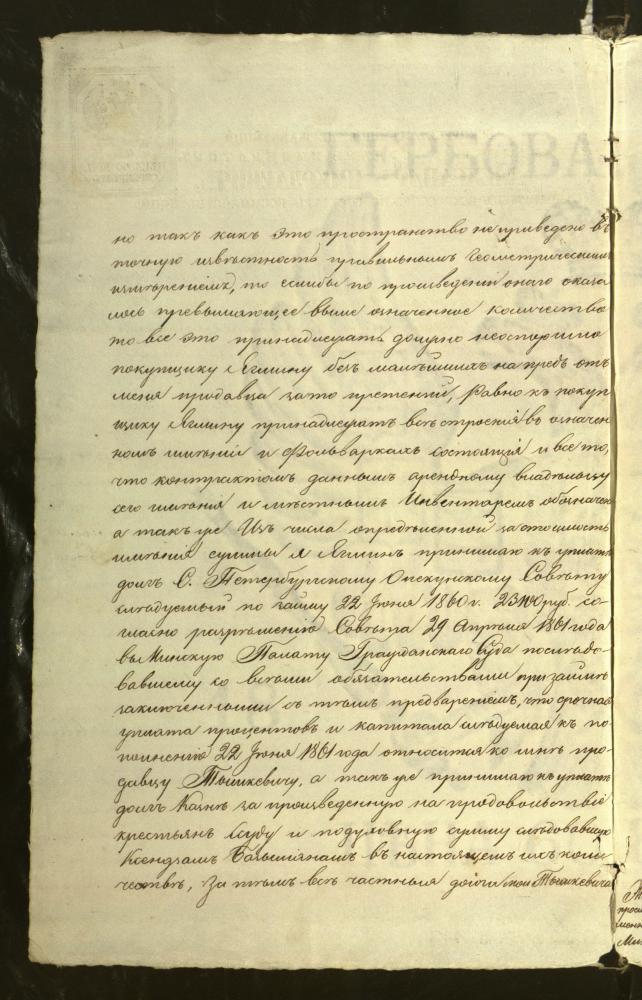 ГЕРБОВА
но такъ какъ это пространство не приведено въ
точную извѣстность правильнымъ Геометрическимъ
измѣреніемъ, то еслибы по произведеніи онаго оказа
лось превышающее выше означенное количество
то все это принадлежать должно неоспоримо
покупщику Яглину безъ малѣйшихъ на предъ отъ
меня продавца за то претензій, Равно къ покуп
щику Яглину принадлежатъ всѣ строенія въ означен
номъ имѣніи и Фольваркахъ состоящія и все то,
что контрактомъ даннымъ арендному владѣльцу
сего имѣнія и мѣстнымъ Инвентаремъ обозначено
а такъ же Изъ числа опредѣленной за стоимость
имѣнія суммы я Яглинъ принимаю къ уплатѣ
долгъ С. Петербургскому Опекунскому Совѣту
слѣдуемый по займу 22 Іюня 1860 г. 23100 руб. со-
гласно разрѣшенію Совѣта 29 Апрѣля 1861 года
въ Минскую Палату Гражданскаго Суда послѣдо-
вавшему со всѣми обязательствами при займѣ
заключенными съ тѣмъ предвареніемъ, что срочная
уплата процентовъ и капитала слѣдуемая къ по
полненію 22 Іюня 1861 года относится ко мнѣ про-
давцу Тышкевичу, а такъ же принимаю къ уплатѣ
долгъ Казнѣ за произведенную на продовольствіе
крестьянъ ссуду и подуховную сумму слѣдовавшую
Ксендзамъ Базыліянамъ въ настоящемъ ихъ коли
чествѣ, За тѣмъ всѣ частные долги мои Тышкевича